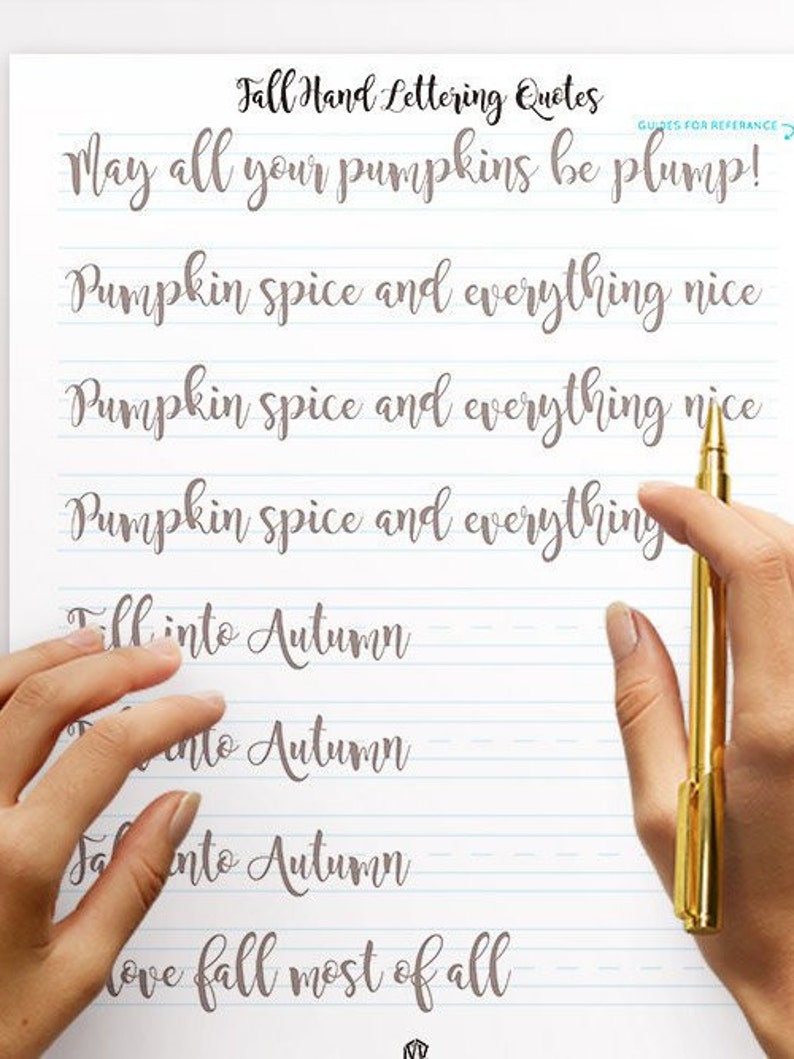 Fall Hand Lettering Quotes
GUIDES FOR REFERANCE
May all your pumpkins be plump!
Pumpkin spice and everything nice
Pumpkin spice and everything nice
Pumpkin spice and everything
Fall into Autumn
Fall into Autumn
Fall into Autumn
love fall most of all